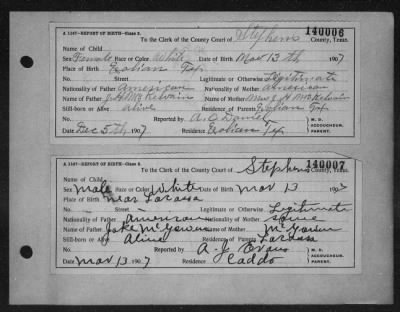 140006
A 1157-REPORT OF BIRTH-Class 2.
To the Clerk of the County Court of Stephens County, Texas.
Name of Child
Sex Female Race or Color White Date of Birth Nov 13th 1907
Place of Birth Eolian Tex
Street Legitimate or Otherwise Legitimate
Nationality of Father American Nationality of Mother American
Name of Father J. H. McKelvain Name of Mother Mrs J H McKelvain
Still-born or Alive Alive Residence of Parents Eolian Tex
Reported by A. C. Daniel M. D. ACCOUCHEUR. PARENT.
Date Dec 5th 1907 Residence Eolian Tex
140007
A 1157-REPORT OF BIRTH-Class 2.
To the Clerk of the County Court of Stephens County, Texas.
Name of Child
Sex Male Race or Color White Date of Birth Mar 13 190
Place of Birth near
Street Legitimate or Otherwise Legitimate
Nationality of Father American Nationality of Mother same
Name of Father Jake McGowen Name of Mother McGowen
Still-born or Alive Alive Residence of Parents
Reported by A. J. Evans M. D. ACCOUCHEUR. PARENT.
Date Mar 13 1907 Residence Caddo